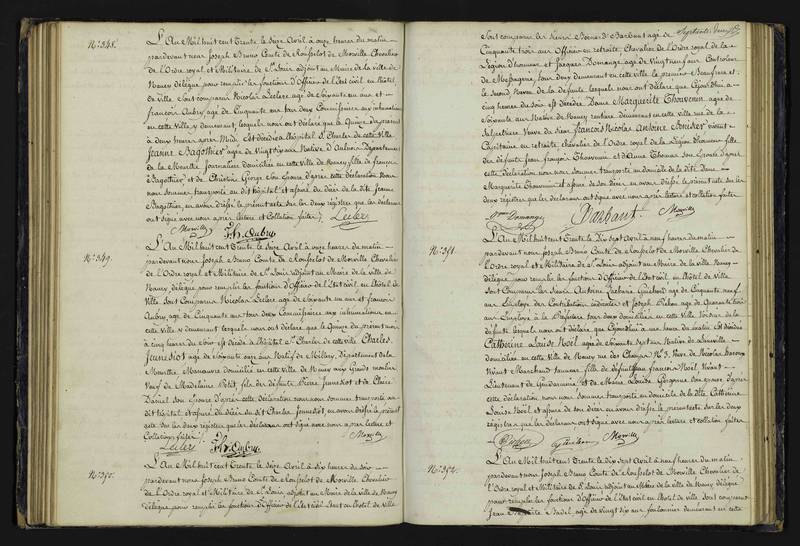 N.º 348.
L'An Mil huit cent Trente le Seize Avril à onze heures du matin
pardevant nous Joseph Bruno Comte de Rousselot de Morville Chevalier
de l'Ordre royal et Militaire de St. Louis adjoint au Maire de la ville de
Nancy délégué pour remplir les fonctions d'Officier de l'Etat civil en l'hôtel
de Ville Sont comparus Nicolas Leclerc agé de Soixante un ans et
françois Aubry agé de Cinquante ans tous deux Commissaires aux inhumations
en cette Ville y demeurant, lesquels nous ont déclaré que le Quinze du présent
à deux heures après Midi Est décédée à l'hôpital St. Charles de cette Ville
Jeanne Bagothier agée de Vingt Six ans Native d'Aulnois Département
de la Meurthe Journalière domiciliée en cette Ville de Nancy fille de françois
Bagothier et de Christine George Son épouse d'après cette déclaration Nous
nous sommes transportés au dit hôpital et assuré du décès de la dite Jeanne
Bagothier en avons dressé le présent acte sur les deux registres que les déclarans
ont signé avec nous après lecture et Collation faites
Leclerc
Morville
Fh. Aubry
N.º 349.
L'An Mil huit cent Trente le Seize Avril à onze heures du matin
pardevant nous Joseph Bruno Comte de Rousselot de Morville Chevalier
de l'Ordre royal et Militaire de St. Louis adjoint au Maire de la ville de
Nancy délégué pour remplir les fonctions d'Officier de l'Etat civil en l'hôtel de
Ville Sont Comparus Nicolas Leclerc agé de Soixante un ans et françois
Aubry agé de Cinquante ans tous deux Commissaires aux inhumations en
cette Ville y demeurant lesquels nous ont déclaré que le Quinze du présent mois
à cinq heures du soir est décédé à l'hôpital St. Charles de cette ville Charles
Jeunesiot agé de Soixante ans Natif de Millery, département de la
Meurthe Manœuvre domicilié en cette Ville de Nancy aux Grands moulins
Veuf de Madeleine Petit fils des défunts Pierre Jeunesiot et de Claire
Daniel son épouse d'après cette déclaration nous nous sommes transportés au
dit hôpital et assuré du décès du dit Charles Jeunesiot en avons dressé le présent
acte sur les deux registres que les déclarans ont signé avec nous après lecture et
Collation faites
Leclerc
Fh. Aubry
Morville
N.º 350.
L'An Mil huit cent Trente le Seize Avril à dix heures du soir
pardevant nous Joseph Bruno Comte de Rousselot de Morville Chevalier
de l'Ordre royal et Militaire de St. Louis adjoint au Maire de la ville de Nancy
délégué pour remplir les fonctions d'Officier de l'Etat civil en l'hôtel de ville
Sont comparus les Sieurs Bernard Barbaut agé de
Cinquante trois ans Officier en retraite, Chevalier de l'Ordre royal de la
Légion d'honneur et Jacques Domange agé de Vingt neuf ans Controleur
de Messageries tous deux demeurant en cette ville le premier Beaufrère et
le second Neveu de la défunte lesquels nous ont déclaré que Aujourd'hui à
cinq heures du Soir est décédée Dame Marguerite Thouvenin agée de
Soixante ans Native de Nancy rentière demeurant en cette ville rue de la
Salpetriere Veuve du Sieur François Nicolas Antoine vivant
Capitaine en retraite, chevalier de l'Ordre royal de la Légion d'honneur fille
des défunts Jean françois Thouvenin et d'Anne Thomas Son épouse d'après
cette déclaration nous nous sommes transportés au domicile de la dite Dame
Marguerite Thouvenin et assuré de son décès en avons dressé le présent acte sur les
deux registres que les déclarans ont signé avec nous après lecture et collation faites
Domange
Barbaut
Morville
N.º 351.
L'An Mil huit cent Trente le Dix Sept Avril à neuf heures du matin
pardevant nous Joseph Bruno Comte de Rousselot de Morville Chevalier de
l'Ordre royal et Militaire de St. Louis adjoint au Maire de la ville Nancy
délégué pour remplir les fonctions d'Officier de l'Etat civil en l'hôtel de Ville
Sont Comparus les Sieurs Antoine Zacharie Guichard agé de Cinquante neuf
ans Employé des Contributions indirectes et Joseph agé de Quarante trois
ans Employé à la Préfecture tous deux domiciliés en cette Ville Voisins de la
défunte lesquels nous ont déclaré que Aujourd'hui à une heure du matin Est décédée
Catherine Louise Noël agée de Soixante Sept ans Native de Lunéville
domiciliée en cette Ville de Nancy rue des Champs N.º 3. Veuve de Nicolas
Vivant Marchand tanneur fille de défunt Jean françois Noël Vivant
Lieutenant de Gendarmerie, et de Marie Louise son épouse d'après
cette déclaration nous nous sommes transportés au domicile de la dite Catherine
Louise Noël et assuré de son décès en avons dressé le présent acte sur les deux
registres que les déclarans ont signé avec nous après lecture et collation faites
Morville
N.º 352.
L'An Mil huit cent Trente le Dix Sept Avril à neuf heures du matin
pardevant nous Joseph Bruno Comte de Rousselot de Morville Chevalier de
l'Ordre royal et Militaire de St. Louis adjoint au Maire de la ville de Nancy délégué
pour remplir les fonctions d'Officier de l'Etat civil en l'hôtel de ville sont comparus
Jean Baptiste agé de vingt six ans demeurant en cette